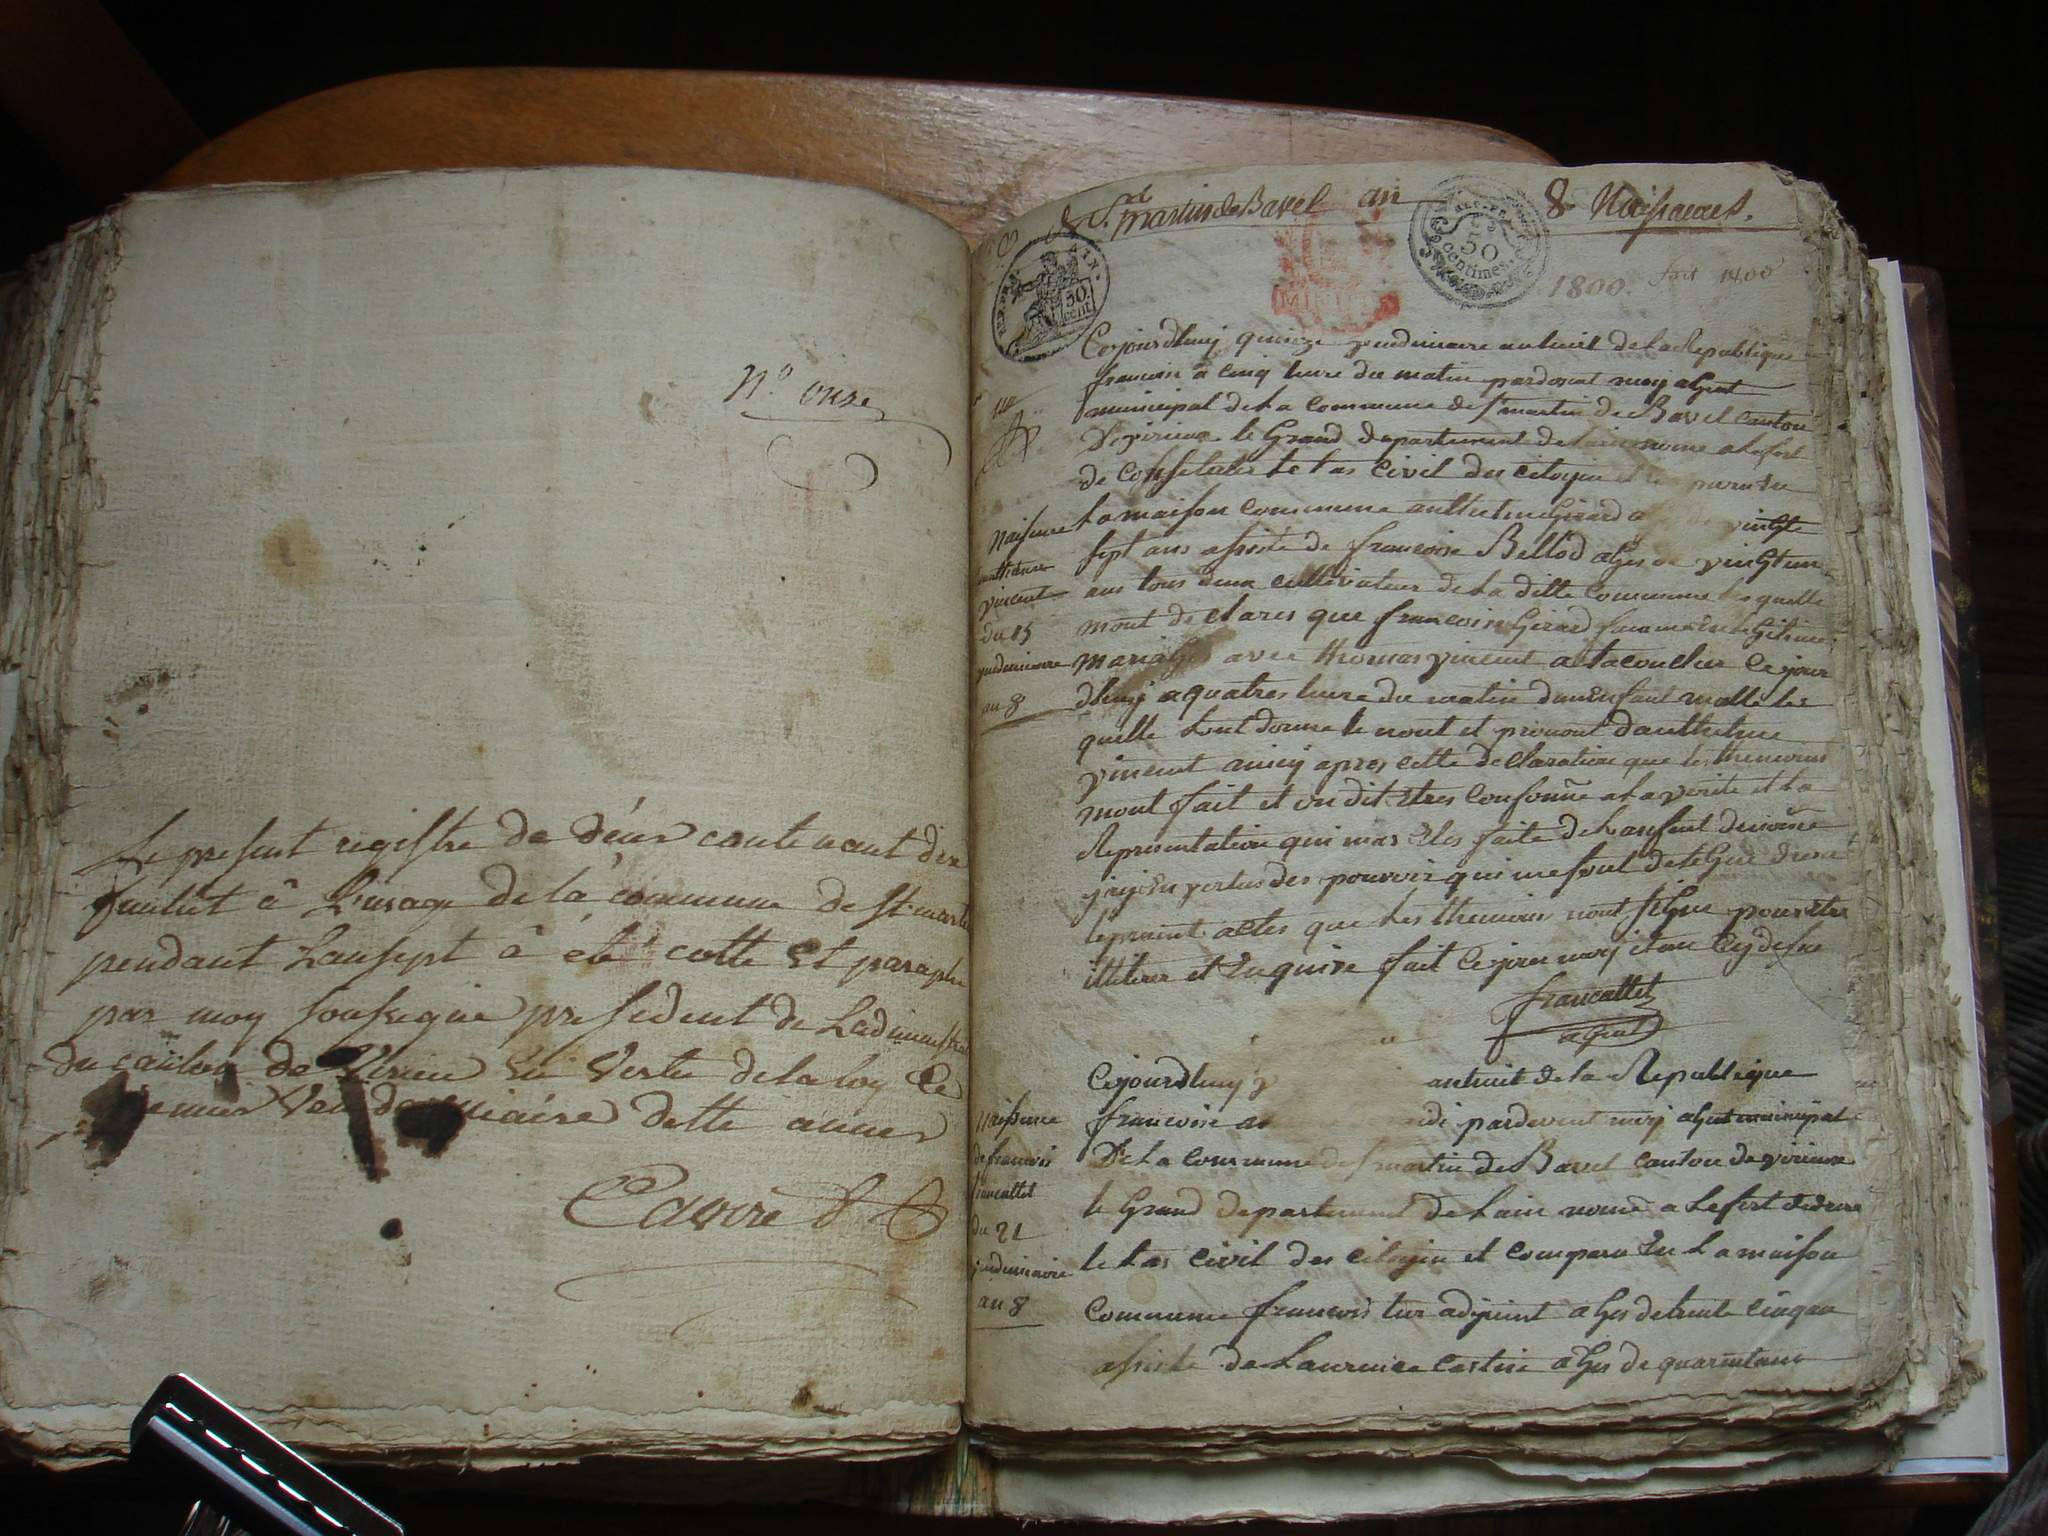 N.o onze
Le present registre de déus contenant dix
feuillet â L'usage de la commune de st martin
pendant Lansept â été cotte Et paraphe
par moy sousigné president de Ladminist
du canton de Virieu En Vertu de la loy Ce
premier Vendemiaire dette annee
de St. martin de Bavel an 8 Naissances.
50 cent.
MINUTE
50 centimes
1800. soit 1400
Cejourdhuy quinze vendemiaire anhuit de La Republique
francoise a cinq heure du matin pardevant moy agent
municipal de La commune de st martin de Bavel canton
De virieux le Grand departement de lain nomé a Lefect
de Constater Le tas civil des citoyin et comparu en
La maison commune anthelme Girard vingte
sept ans assisté de francoise Bellod ages de vingtun
ans tous deux cultivateur de La ditte Commune Les quelle
mont declares que francoise Girard famme en Legitime
mariage avec thomas vincent a etacoucher ce jour
dhuy a quatres heure du matin dun enfant malle les
quelle Lont donne le nont et pronont danthelme
vincent ainsy apres cette declaration que les themoins
mont fait et on dit Etres conforme a La verite et La
Representation qui mas Etes faite de Lanfant denomé
jay En vertus des pouvoir qui me sont delegue
le present actes que Les themoins nont signe pour etre
illiterer et Enquise fait Ce jour moy et an Cy desus
francallet
agent
Naisance
danthelme
vincent
du 15
vendemiaire
an 8
Cejourdhuy anhuit de la Republique
francoise pardevent moy agent municipal
De La commune de st martin de Bavel canton de virieux
le Grand departement de Lain nomé a Lefect dedrese
le tas civil des citoyin et comparu En La maison
Commune francois tur adjoint ages de trente cinq an
assisté de Laurence ages de quarentans
Naissance
de francois
francallet
du 21
vendemiaire
an 8